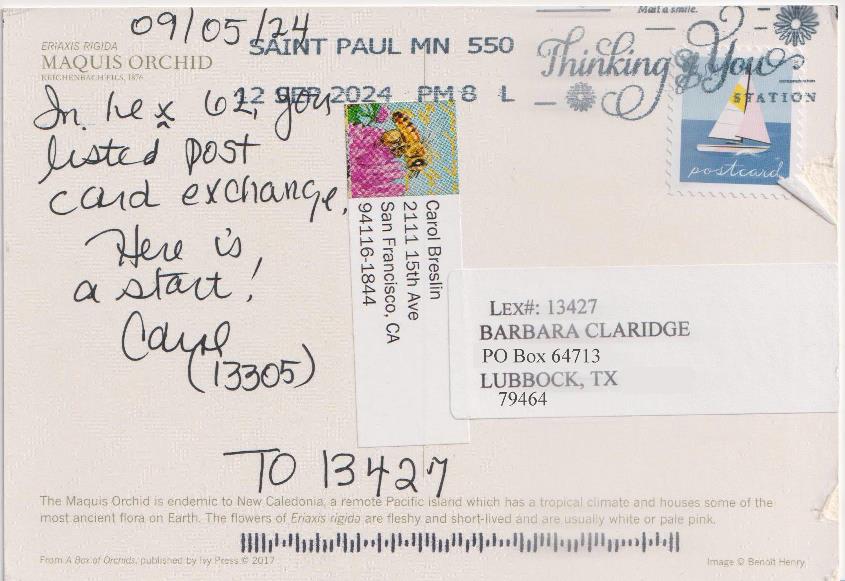 09/05/24
ERIAXIS RIGIDA
MAQUIS ORCHID
REICHENBACH FILS, 1876
SAINT PAUL MN 550
12 SEP 2024 PM 8 L
Mail a smile.
Thinking of You
STATION
postcard
In Lex 62, you
listed post
card exchange.
Here is
a start!
Carol
(13305)
Carol Breslin
2111 15th Ave
San Francisco, CA
94116-1844
LEX#: 13427
BARBARA CLARIDGE
PO Box 64713
LUBBOCK, TX
79464
TO 13427
The Maquis Orchid is endemic to New Caledonia, a remote Pacific island which has a tropical climate and houses some of the
most ancient flora on Earth. The flowers of Eriaxis rigida are fleshy and short-lived and are usually white or pale pink.
From A Box of Orchids, published by Ivy Press © 2017
Image © Benoît Henry